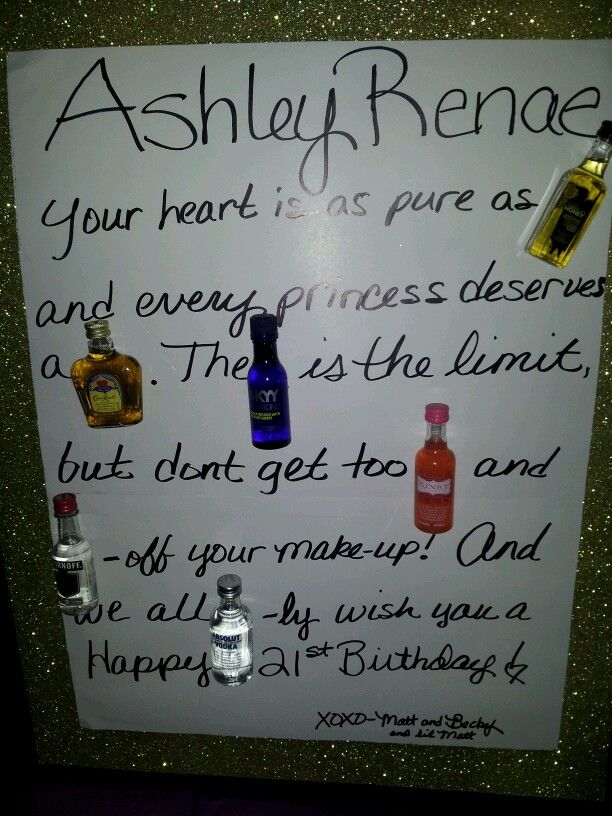 Ashley Renae
Your heart is as pure as
and every princess deserves
a . The SKYY is the limit,
but dont get too KINKY and
SMIRNOFF -off your make-up! And
we all ABSOLUT VODKA -ly wish you a
Happy 21st Birthday
XOXO- Matt and Becky
and lil Matt